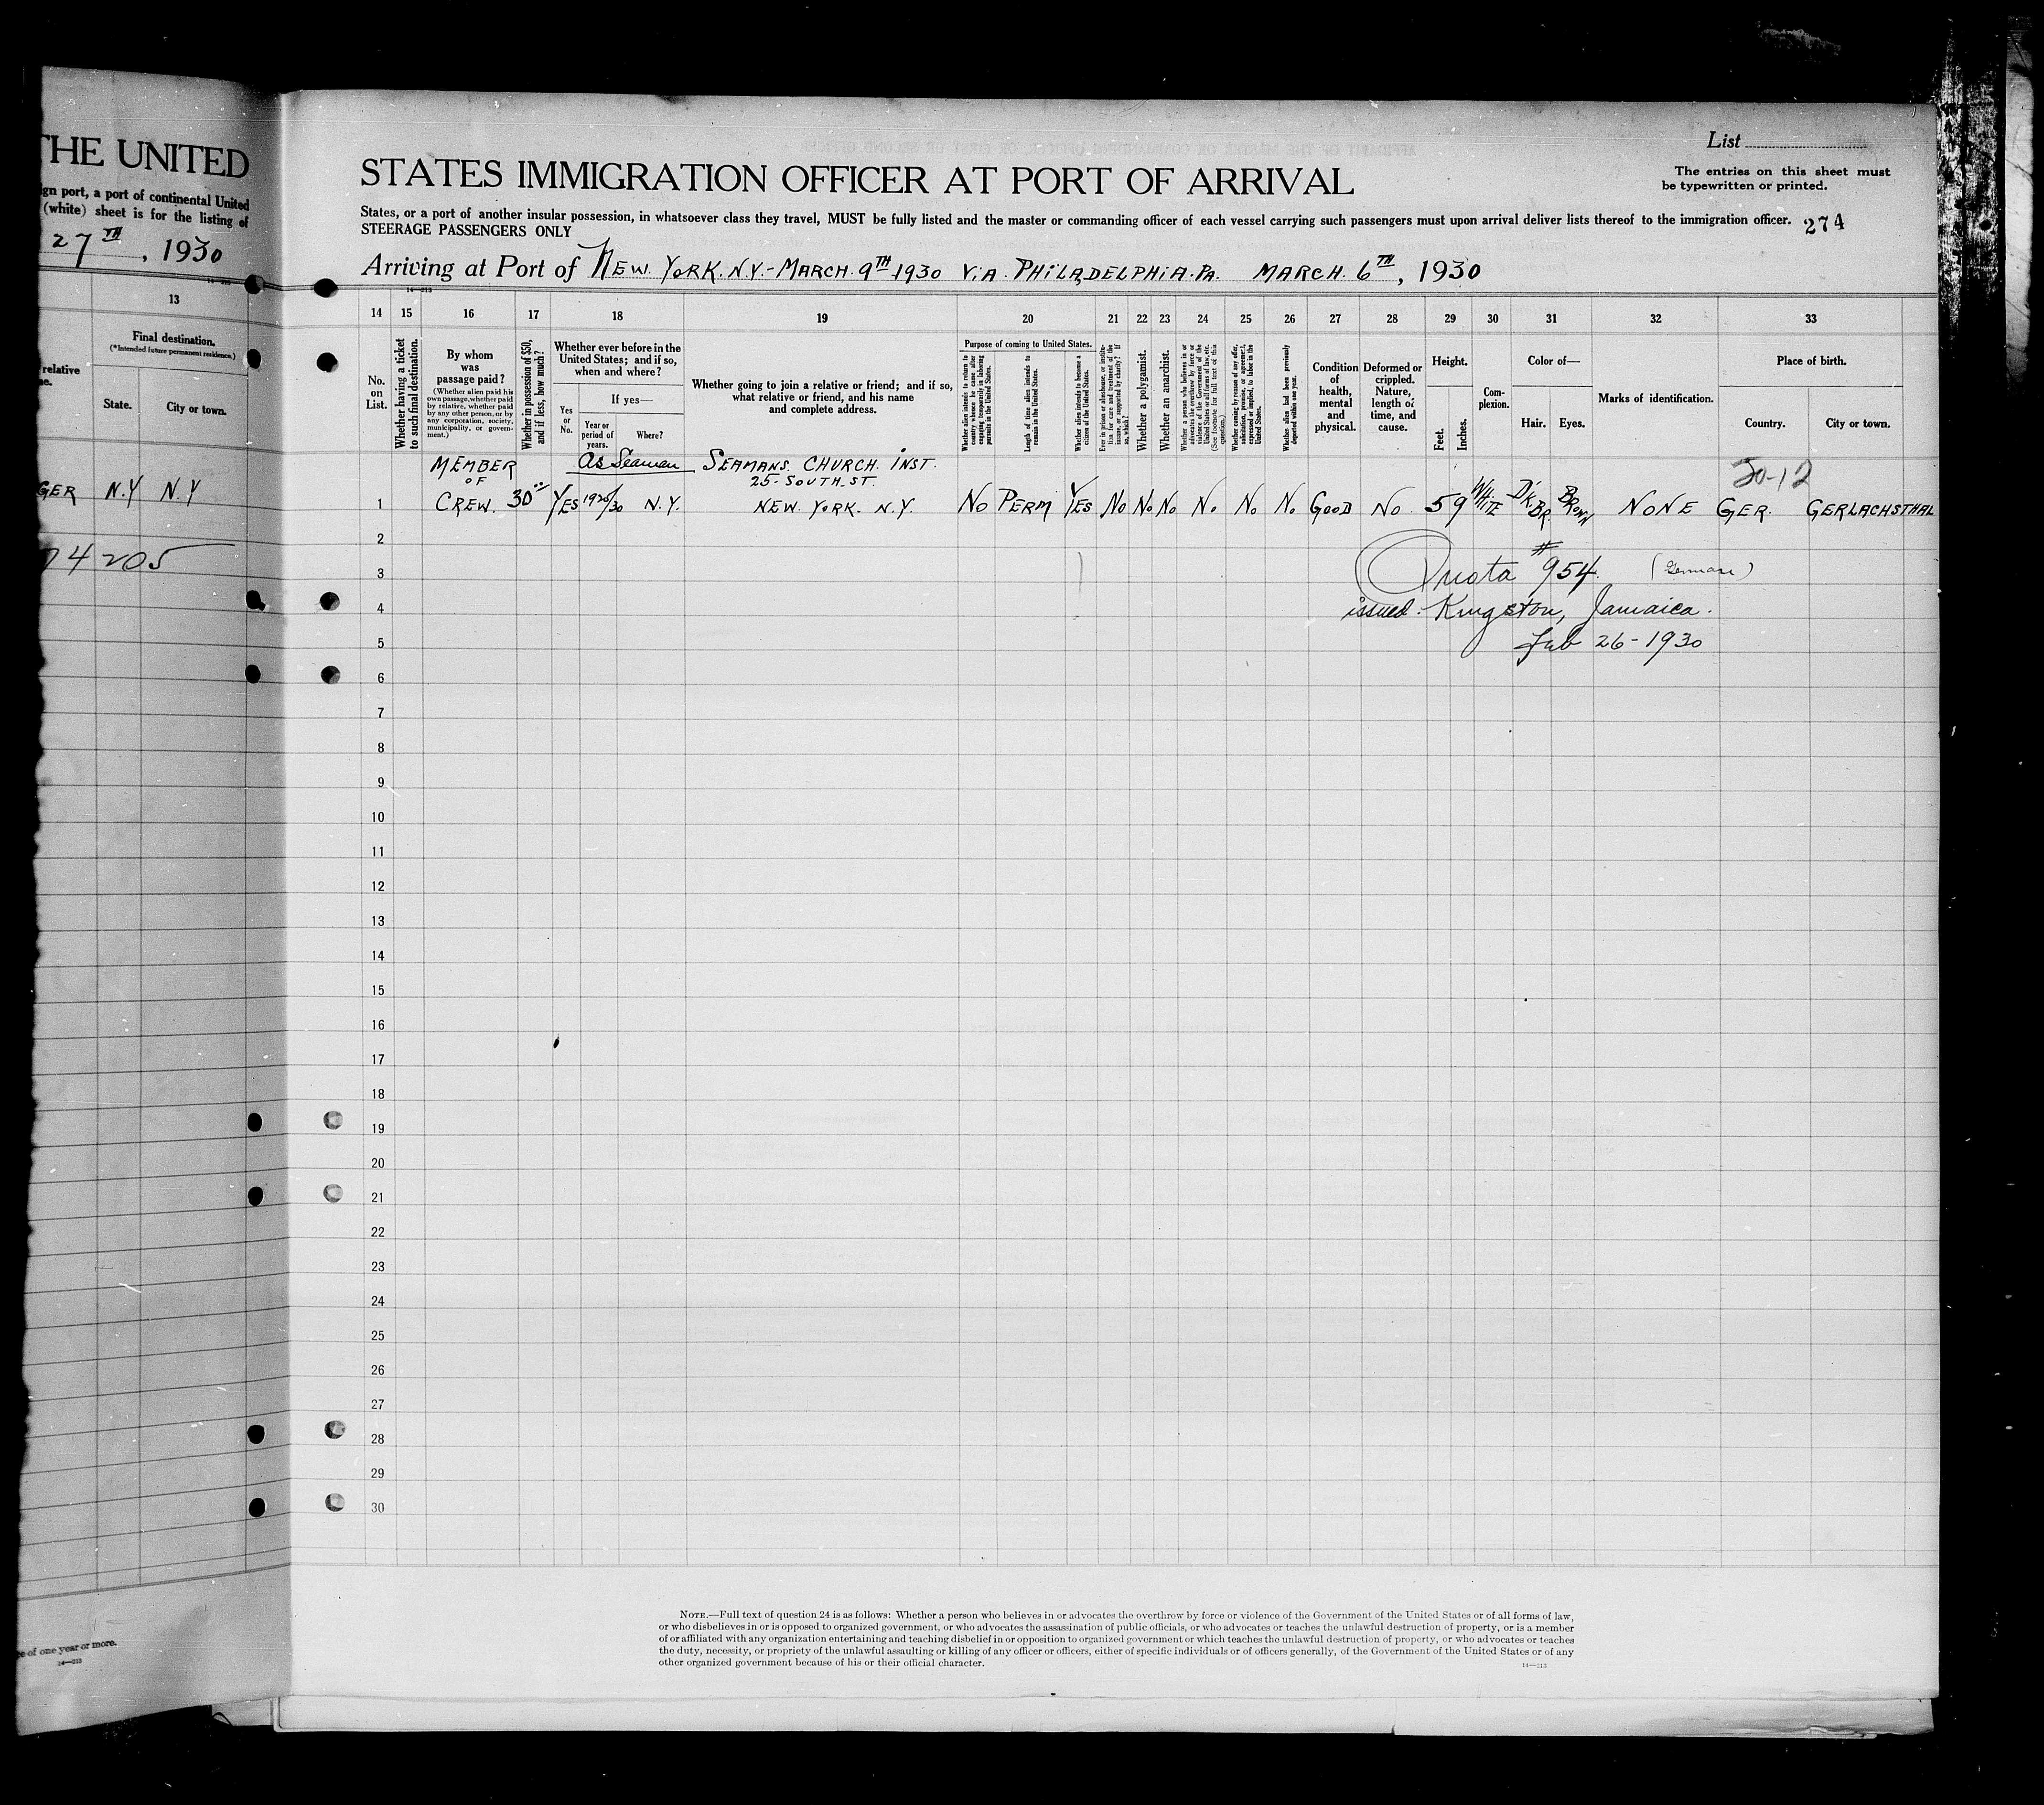 THE UNITED
gn port, a port of continental United
(white) sheet is for the listing of
27TH, 1930
14—213
13
Final destination.
(*Intended future permanent residence.)
relative
State.
City or town.
GER N.Y N.Y
74205
e of one year or more.
14—213
List
STATES IMMIGRATION OFFICER AT PORT OF ARRIVAL
The entries on this sheet must
be typewritten or printed.
States, or a port of another insular possession, in whatsoever class they travel, MUST be fully listed and the master or commanding officer of each vessel carrying such passengers must upon arrival deliver lists thereof to the immigration officer. 274
STEERAGE PASSENGERS ONLY
Arriving at Port of NEW YORK. N.Y.-MARCH. 9TH 1930 ViA. PHiLADELPHiA. PA. MARCH. 6TH, 1930
14—213
14 15 16 17 18 19 20 21 22 23 24 25 26 27 28 29 30 31 32 33
No.
on
List.
Whether having a ticket
to such final destination.
By whom
was
passage paid?
(Whether alien paid his
own passage, whether paid
by relative, whether paid
by any other person, or by
any corporation, society,
municipality, or govern-
ment.)
Whether in possession of $50,
and if less, how much?
Whether ever before in the
United States; and if so,
when and where?
If yes—
Yes
or
No.
Year or
period of
years.
Where?
Whether going to join a relative or friend; and if so,
what relative or friend, and his name
and complete address.
Purpose of coming to United States.
Whether alien intends to return to
country whence he came after
engaging temporarily in laboring
pursuits in the United States.
Length of time alien intends to
remain in the United States.
Whether alien intends to become a
citizen of the United States.
Ever in prison or almshouse, or institu-
tion for care and treatment of the
insane, or supported by charity? If
so, which?
Whether a polygamist.
Whether an anarchist.
Whether a person who believes in or
advocates the overthrow by force or
violence of the Government of the
United States or all forms of law, etc.
(See footnote for full text of this
question.)
Whether coming by reason of any offer,
solicitation, promise, or agreement,
expressed or implied, to labor in the
United States.
Whether alien had been previously
deported within one year.
Condition
of
health,
mental
and
physical.
Deformed or
crippled.
Nature,
length of
time, and
cause.
Height.
Feet.
Inches.
Com-
plexion.
Color of—
Hair.
Eyes.
Marks of identification.
Place of birth.
Country.
City or town.
MEMBER
OF
CREW.
As Seaman
SEAMANS. CHURCH. INST.
25-SOUTH-ST.
NEW. YORK. N.Y.
20-12
1 30.00 YES 1920/30 N.Y. No PERM YES No No No No No No GOOD No. 5 9 WHITE D'K BR. BROWN NONE GER. GERLACHSTHAL
2
3
4
5
Quota #954. (German)
issued. Kingston, Jamaica.
Feb 26-1930
6
7
8
9
10
11
12
13
14
15
16
17
18
19
20
21
22
23
24
25
26
27
28
29
30
NOTE.—Full text of question 24 is as follows: Whether a person who believes in or advocates the overthrow by force or violence of the Government of the United States or of all forms of law,
or who disbelieves in or is opposed to organized government, or who advocates the assassination of public officials, or who advocates or teaches the unlawful destruction of property, or is a member
of or affiliated with any organization entertaining and teaching disbelief in or opposition to organized government or which teaches the unlawful destruction of property, or who advocates or teaches
the duty, necessity, or propriety of the unlawful assaulting or killing of any officer or officers, either of specific individuals or of officers generally, of the Government of the United States or of any
other organized government because of his or their official character.
14—213